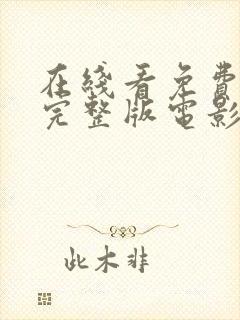 在线看免费
完整版电影
此木非